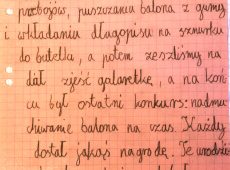 przebojów, puszczania balona z gumy
i wkładaniu długopisu na sznurku
do butelki, a potem zeszliśmy na
dół zjeść galaretkę, a na koń
cu był ostatni konkurs: nadmu
chiwanie balona na czas. Każdy
dostał jakąś nagrodę. Te urodzi